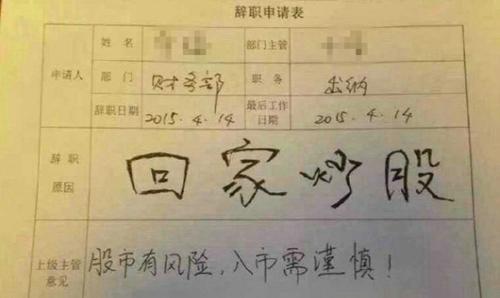 辞职申请表
申请人 姓名 部门主管
部门 财务部 职务 出纳
辞职日期 2015.4.14 最后工作日期 2015.4.14
辞职原因 回家炒股
上级主管意见 股市有风险,入市需谨慎!